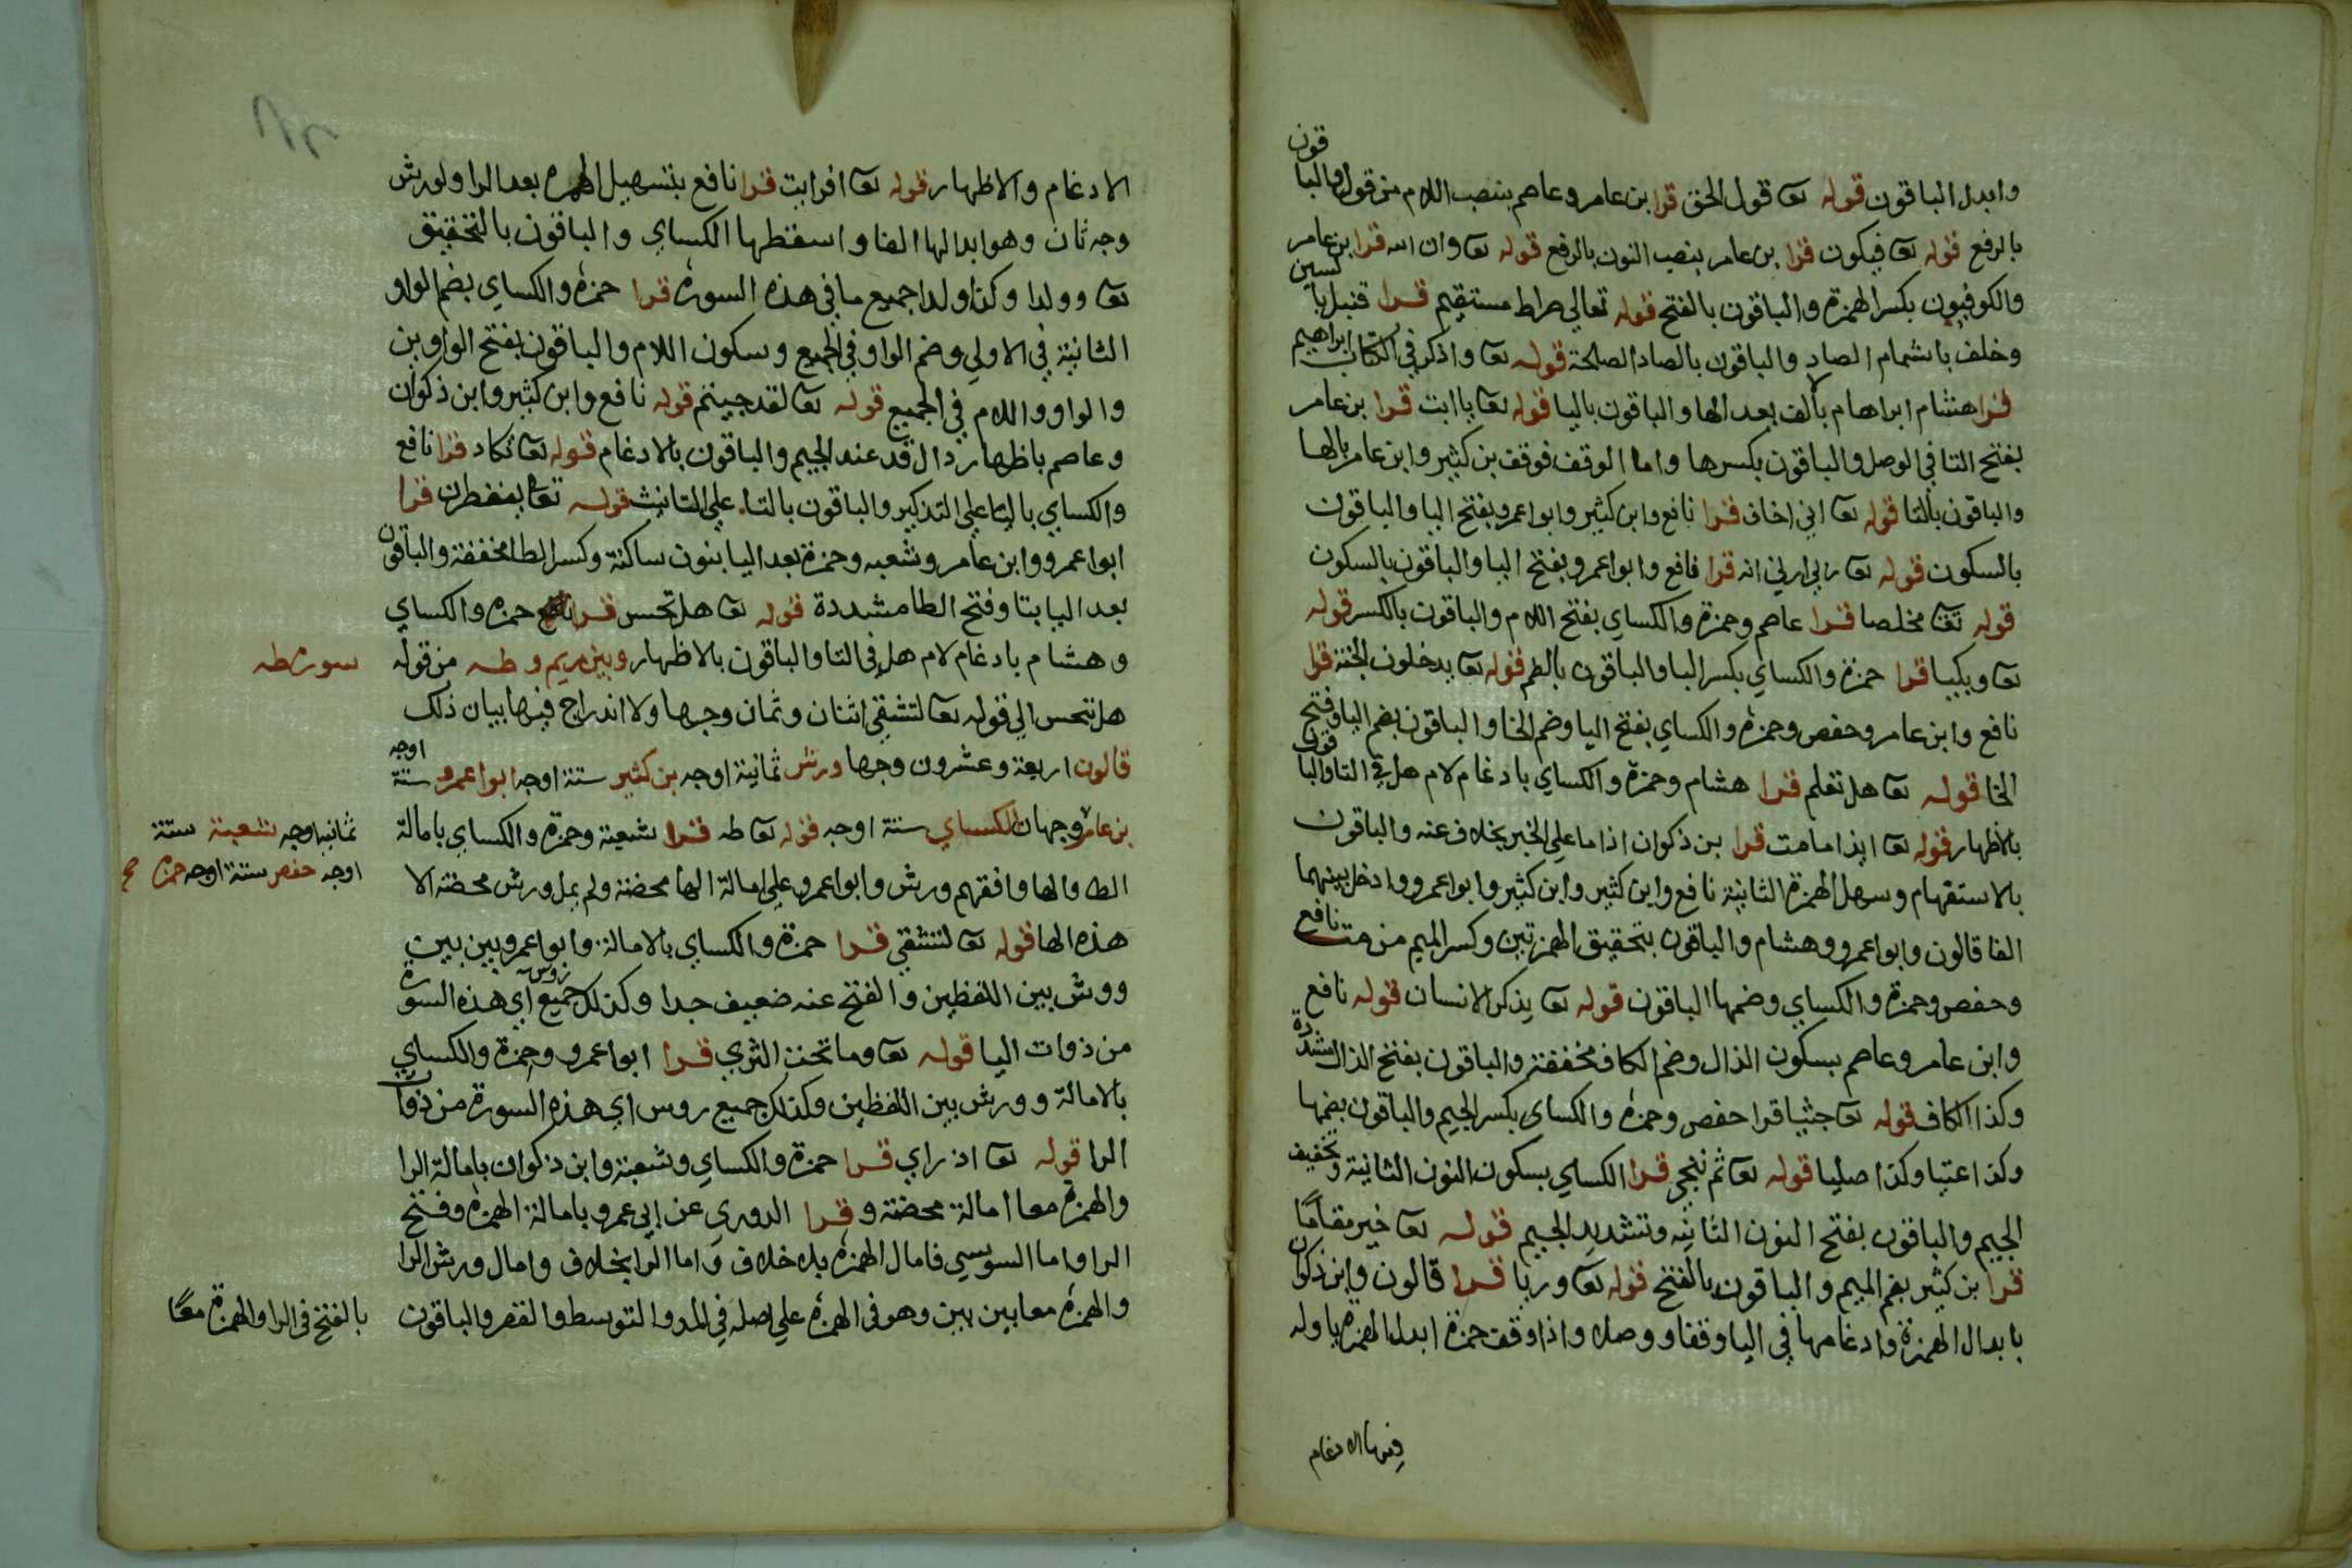 وابدل الباقون قوله تعا قول الحق قرا بن عامر وعاصم بنصب اللام من قول والباقون
بالرفع قوله تعا فيكون قرا بن عامر بنصب النون بالرفع قوله تعا وان الله قرا بن عامر
والكوفيون بكسر الهمزة والباقون بالفتح قوله تعالي صراط مستقيم قرا قنبل بالسين
وخلف باشمام الصاد والباقون بالصاد الصلحة قوله تعا واذكر في الكتاب ابراهيم
قرا هشام ابراهام بألف بعد الها والباقون باليا قوله تعا ياابت قرا بن عامر
بفتح التا في الوصل والباقون بكسرها واما الوقف فوقف بن كثير وابن عامر بالها
والباقون بالتا قوله تعا اني اخاف قرا نافع وابن كثير وابوا عمرو بفتح اليا والباقون
بالسكون قوله تعا ربي انه قرا نافع وابوا عمرو بفتح اليا والباقون بالسكون
قوله تعا مخلصا قرا عاصم وحمزة والكساي بفتح اللام والباقون بالكسر قوله
تعا وبكيا قرا حمزة والكساي بكسر البا والباقون بالضم قوله تعا يدخلون الجنة قرا
نافع وابن عامر وحفص وحمزة والكساي بفتح اليا وضم الخا والباقون بضم اليا وفتح
الخا قوله تعا هل تعلم قرا هشام وحمزة والكساي بادغام لام هل في التا والباقون
بالاظهار قوله تعا ايذا مامت قرا بن ذكوان اذا ما علي الخبر بخلاف عنه والباقون
بالاستفهام وسهل الهمزة الثانية نافع وابن كثير وابن كثير وابوا عمرو وادخل بينهما
الفا قالون وابوا عمرو وهشام والباقون بتحقيق الهمزتين وكسر الميم من مت نافع
وحفص وحمزة والكساي وضمها الباقون قوله تعا يذكر الانسان قوله نافع
وابن عامر وعاصم بسكون الذال وضم الكاف مخففة والباقون بفتح الذال مشددة
وكذا الكاف قوله تعا جثيا قرا حفص وحمزة والكساي بكسر الجيم والباقون بضمها
وكذا عتيا وكذا صليا قوله تعا ثم ننجي قرا الكساي بسكون النون الثانية وتخفيف
الجيم والباقون بفتح النون الثانيه وتشديد الجيم قوله تعا خير مقاما
قرا بن كثير بضم الميم والباقون بالفتح قوله تعا وريا قرا قالون وابن ذكوان
بابدال الهمزة وادغامها في اليا وقفا ووصلا واذا وقف حمزة ابدل الهمزة ياوله
فيها الادغام
الادغام والاظهار قوله تعا افرايت قرا نافع بتسهيل الهمزة بعد الرا ولورش
وجه ثان وهو ابدالها الفا واسقطها الكساي والباقون بالتحقيق
تعا وولدا وكذا ولدا جميع ما في هذه السورة قرا حمزة والكساي بضم الواو
الثانية في الاولي وضم الواو في الجميع وسكون اللام والباقون بفتح الواوين
والواو واللام في الجميع قوله تعا لقد جيتم قوله نافع وابن كثير وابن ذكوان
وعاصم باظهار دال قد عند الجيم والباقون بالادغام قوله تعا تكاد قرا نافع
والكساي باليا علي التذكير والباقون بالتا علي التانيث قوله تعا يتفطرن قرا
ابوا عمرو وابن عامر وشعبه وحمزة بعد اليا بنون ساكنة وكسر الطا مخففة والباقون
بعد اليا بتا وفتح الطا مشددة قوله تعا هل تحس قرا حمزة والكساي
وهشام بادغام لام هل في التا والباقون بالاظهار وبين مريم وطه من قوله
سورة طه
هل تحس الي قوله تعا لتشقي اثنان وثمان وجها ولا اندراج فيها بيان ذلك
قالون اربعة وعشرون وجها ورش ثمانية اوجه بن كثير ستة اوجه ابوا عمرو ستة اوجه
بن عامر وجهان الكساي ستة اوجه قوله تعا طه قرا شعبة وحمزة والكساي بامالة
ثمانيه اوجه شعبة ستة
اوجه حفص ستة اوجه حمزة صح
الطا والها وافقهم ورش وابوا عمرو علي امالة الها محضة ولم يمل ورش محضة الا
هذه الها قوله تعا لتشقي قرا حمزة والكساي بالامالة وابوا عمرو بين بين
وورش بين اللفظين والفتح عنه ضعيف جدا وكذلك جميع روس اي هذه السورة
من ذوات اليا قوله تعا وما تحت الثري قرا ابوا عمرو وحمزة والكساي
بالامالة وورش بين اللفظين وكذلك جميع روس اي هذه السورة من ذوات
الرا قوله تعا اذ راي قرا حمزة والكساي وشعبة وابن ذكوان بامالة الرا
والهمزة معا امالة محضة وقرا الدوري عن ابي عمرو بامالة الهمزة وفتح
الرا واما السوسي فامال الهمزة بلا خلاف واما الرا بخلاف وامال ورش الرا
والهمزة معا بين بين وهو في الهمزة علي اصله في المد والتوسط والقصر والباقون
بالفتح في الرا والهمزة معا